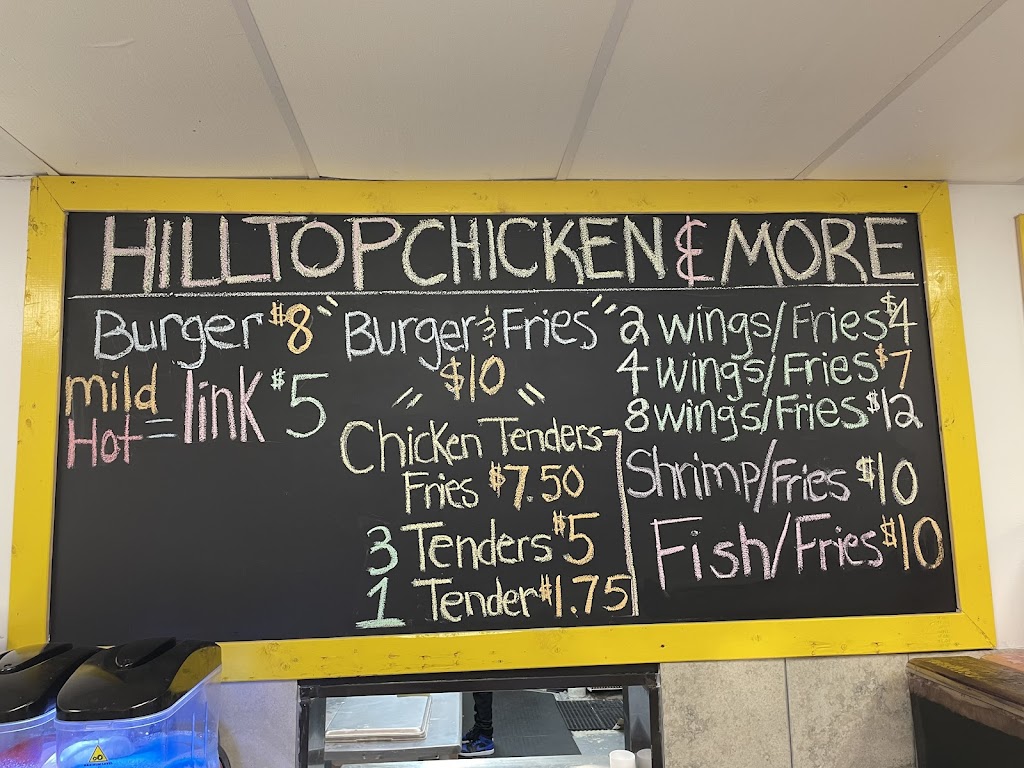 HILLTOP CHICKEN & MORE
Burger $8
mild
Hot = link $5
Burger & Fries
$10
Chicken Tenders
Fries $7.50
3 Tenders $5
1 Tender $1.75
2 wings/Fries $4
4 wings/Fries $7
8 wings/Fries $12
Shrimp/Fries $10
Fish/Fries $10